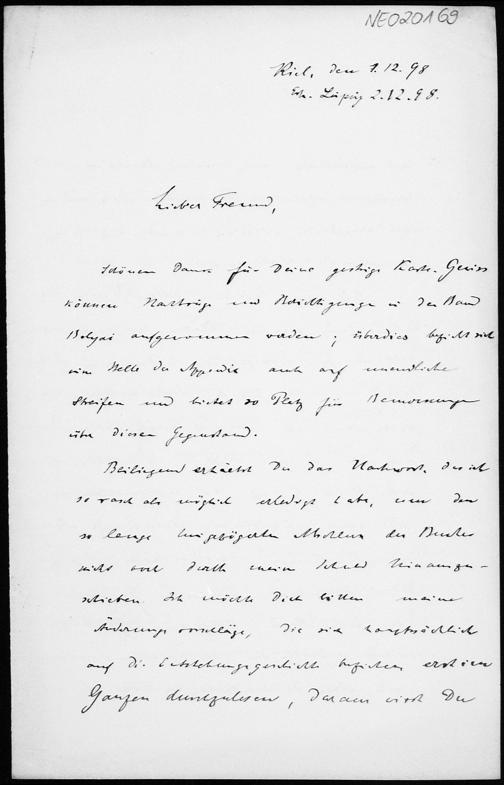 NE020169
Kiel, den 1.12.98
Erh. Leipzig 2.12.98.
Lieber Freund,
Schönen Dank für Deine gestrige Karte. Gewiss
können Nachträge und Berichtigungen in den Band
Bolyai aufgenommen werden; überdies bezieht sich
eine Stelle des Appendix auch auf unendliche
Streifen und bietet so Platz für Bemerkungen
über diesen Gegenstand.
Beiliegend erhältst Du das Nachwort, das ich
so rasch als möglich erledigt habe, um den
so lange hingezögerten Abschluss des Buches
nicht noch durch meine Schuld hinauszu-
schieben. Ich möchte Dich bitten meine
Änderungsvorschläge, die sich hauptsächlich
auf die Entstehungsgeschichte beziehen, erst im
Ganzen durchzulesen, daraus wirst Du